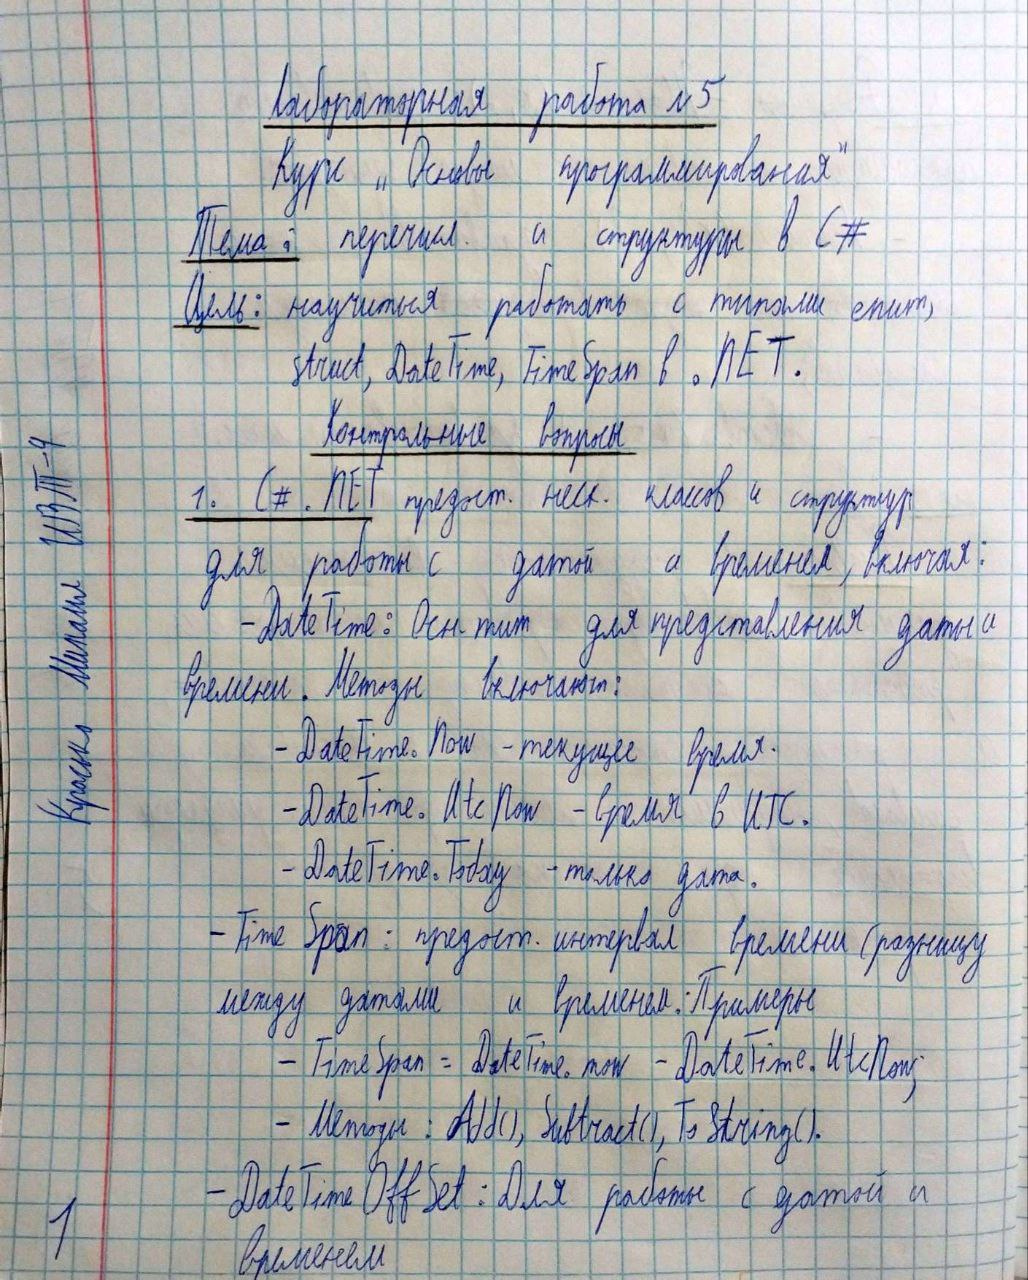 Лабораторная работа №5
Курс „Основы программирования"
Тема: перечисл. и структуры в C#
Цель: научиться работать с типами enum,
struct, DateTime, TimeSpan в .NET.
Контрольные вопросы
1. C# .NET предост. неск. классов и структур
для работы с датой и временем, включая:
- DateTime: Осн тип для представления даты и
времени. Методы включают:
- DateTime.Now - текущее время.
- DateTime.UtcNow - время в UTC.
- DateTime.Today - только дата.
- TimeSpan: предост. интервал времени (разницу
между датами и временем. Примеры
- TimeSpan = DateTime.now - DateTime.UtcNow;
- Методы: Add(), Subtract(), ToString().
- DateTimeOffSet: Для работы с датой и
временем
ИВТ-4
1